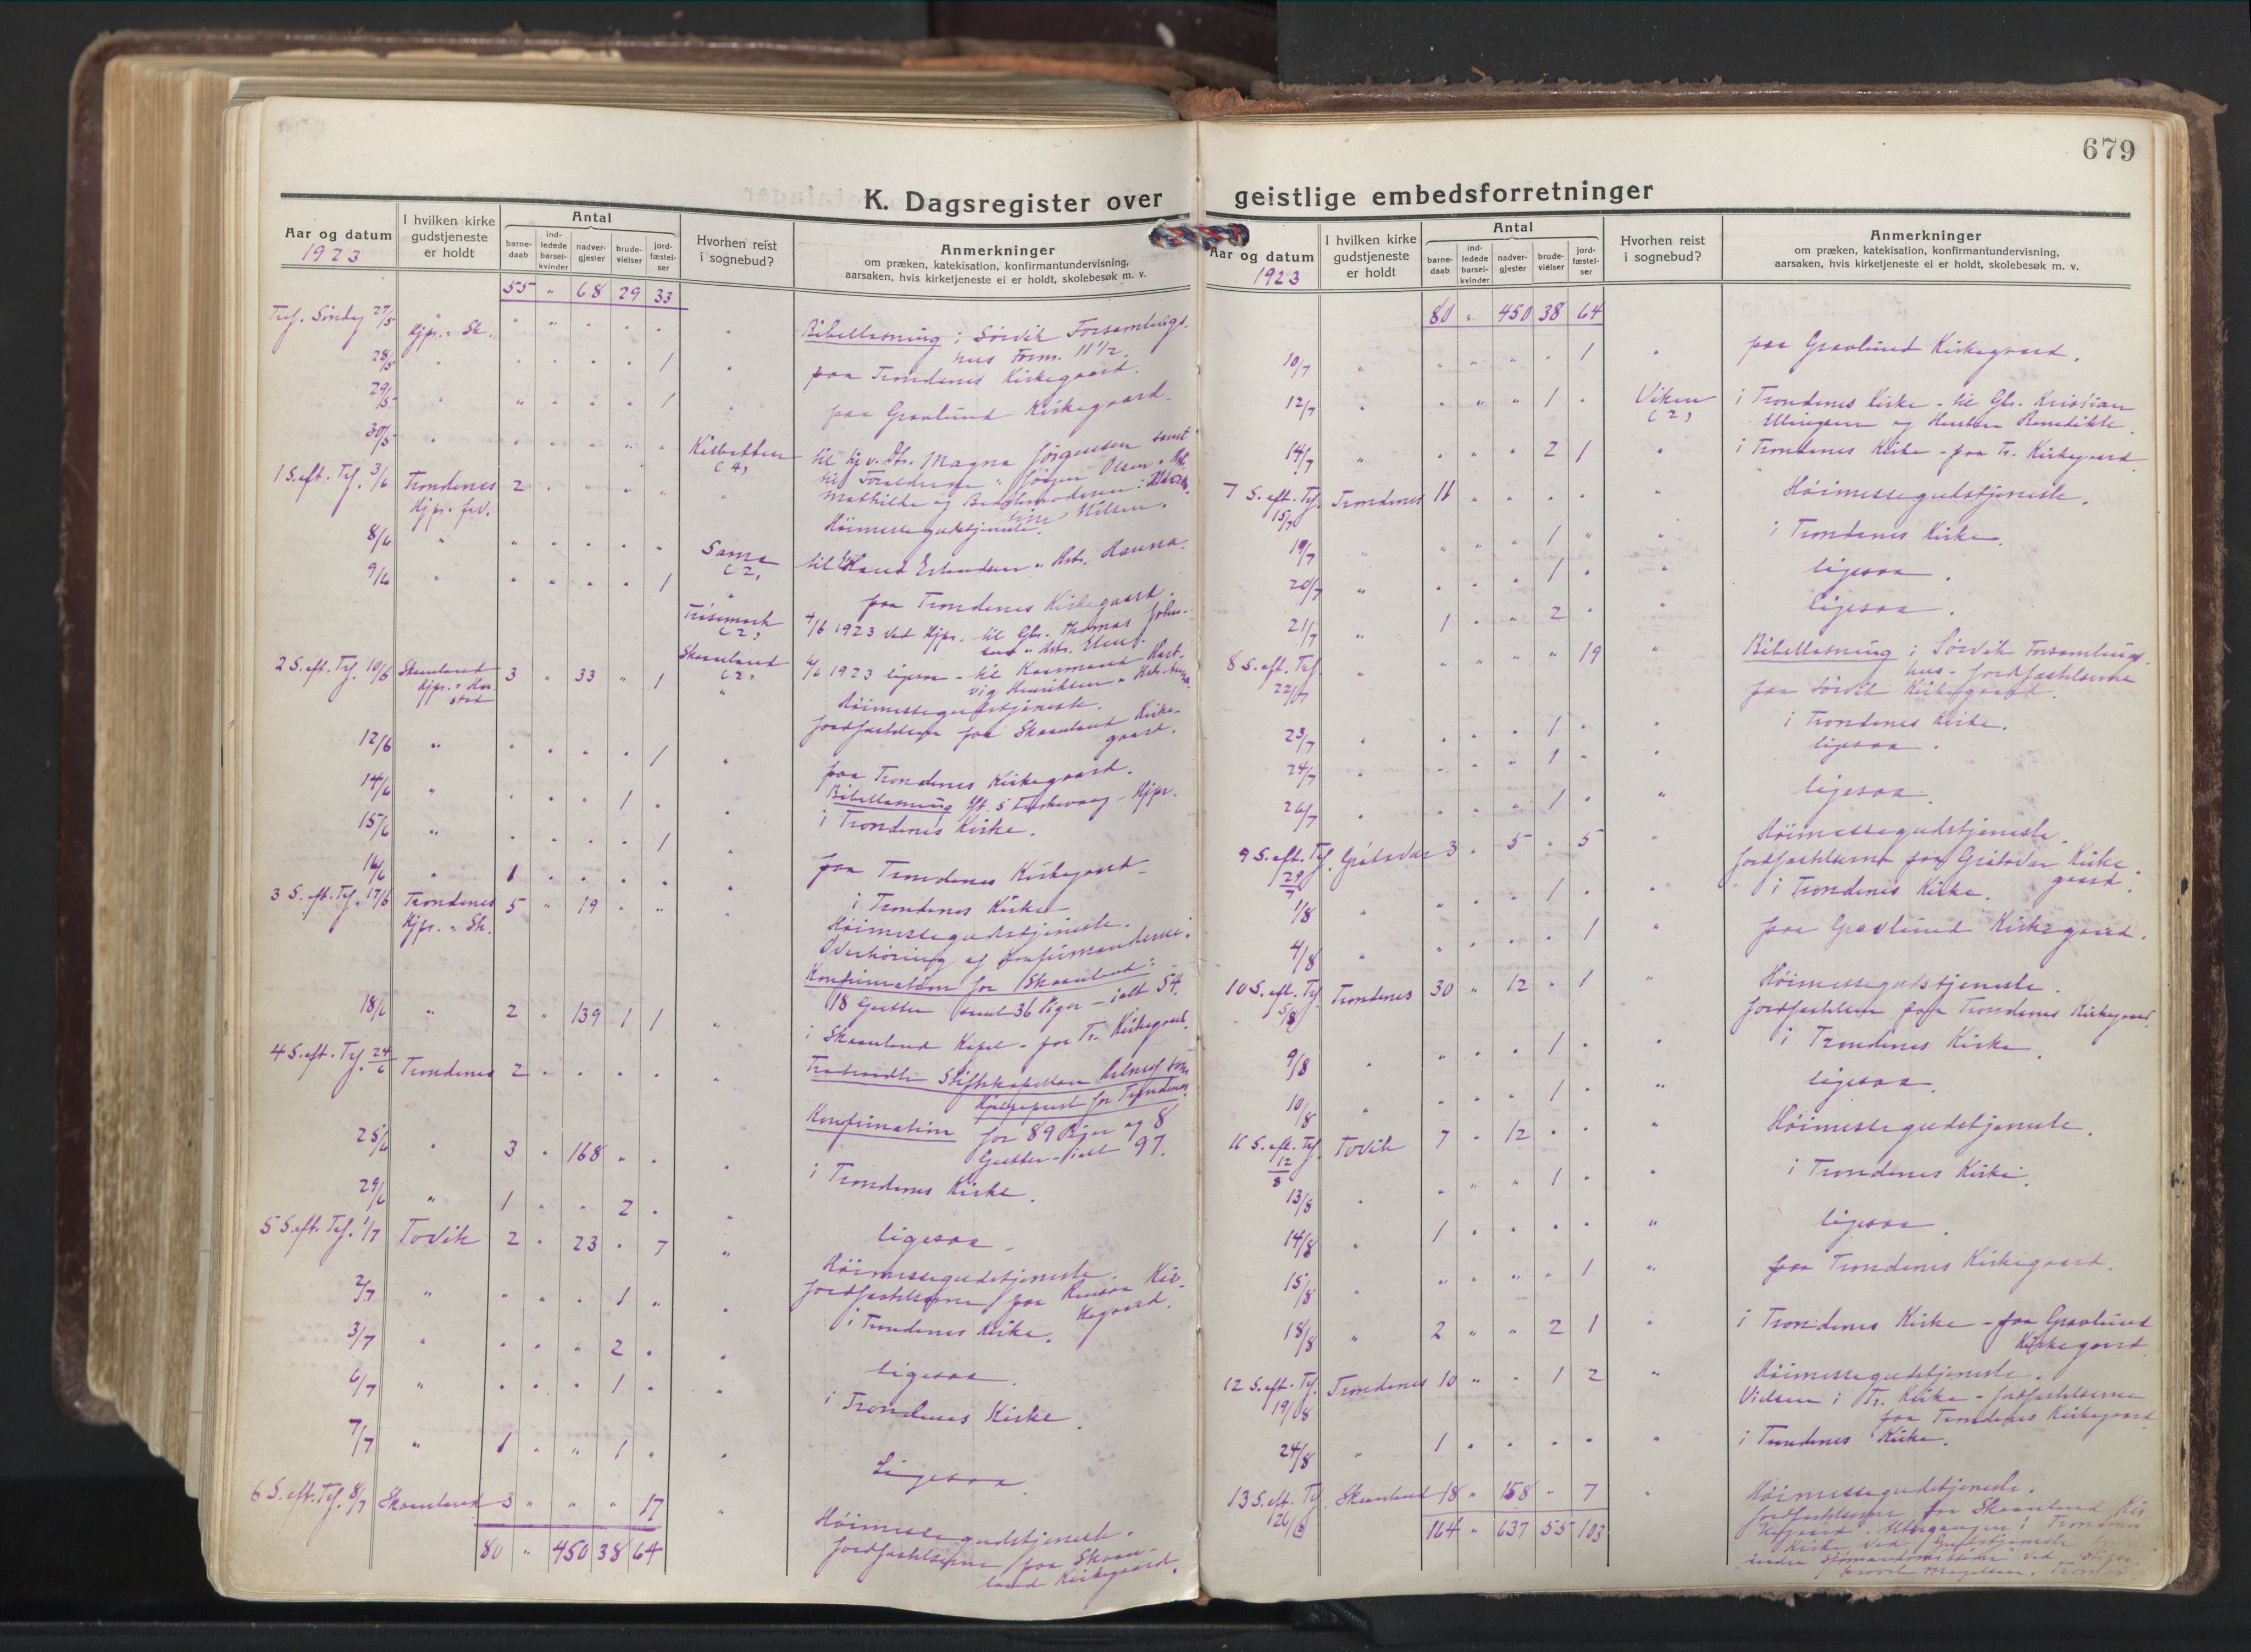 679
K. Dagsregister over geistlige embedsforretninger
Aar og datum
1923
I hvilken kirke gudstjeneste er holdt
Antal
barne-daab
ind-ledede barsel-kvinder
nadver-gjester
brude-vielser
jord-fæstel-ser
Hvorhen reist i sognebud?
Anmerkninger
om præken, katekisation, konfirmantundervisning,
aarsaken, hvis kirketjeneste ei er holdt, skolebesøk m. v.
55 " 68 29 33
Tref. Søndag 27/5 " " " " " " " Bibellæsning i Sørvik Forsamlings-
Hjpr. " Sk. hus Form. 11 1/2.
28/5 " " " " " 1 " paa Trondenes Kirkegaard.
29/5 " " " " " 1 " paa Gravlund Kirkegaard.
30/5 " " " " " " Kilbotten til Magna Jørgensen samt
(4)
1 S. eft. Tref. 3/6 Trondenes 2 " " " " "
Mathilde og
Høimessegudstjeneste.
8/6 " " " " " " Sama til
(2)
9/6 " " " " " 1 " paa Trondenes Kirkegaard.
(2) 4/6 1923 ved Hjpr. til Gbr. Thomas John-
Skaanland 4/6 1923 ligesaa - til
(2)
2 S. eft. Tref. 10/6 Skaanland 3 " 33 " 1 " Høimessegudstjeneste.
Jordfæstelsen paa Skaanland Kirke-
gaard.
12/6 " " " " " 1 " paa Trondenes Kirkegaard.
14/6 " " " " 1 " " Bibellæsning
i Trondenes Kirke.
15/6 " " " " " 1 " paa Trondenes Kirkegaard
16/6 " 1 " " " " " i Trondenes Kirke
3 S. eft. Tref. 17/6 Trondenes 5 " 19 " " " Høimessegudstjeneste.
Hjpr. " Sk. Overhøring af Konfirmanderne.
Konfirmation for Skaanland:
18/6 " 2 " 139 1 1 " 18 Gutter samt 36 Piger - ialt 54.
i Skaanland Kapel - paa Tr. Kirkegaard.
4 S. eft. Tref. 24/6 Trondenes 2 " " " " " Stiftskapellan som
Hjelpeprest for Trondenes.
25/6 " 3 " 168 " " " Konfirmation for 89 Piger og 8
Gutter - ialt 97.
29/6 " 1 " " 2 " " i Trondenes Kirke.
5 S. eft. Tref. 1/7 Tovik 2 " 23 " 7 " ligesaa
Høimessegudstjeneste.
Jordfæstelserne paa Kir-
kegaard.
2/7 " " " " 1 " " i Trondenes Kirke.
3/7 " " " " 2 " " ligesaa.
6/7 " " " " 1 " " i Trondenes Kirke.
7/7 " 1 " " 1 " " Ligesaa.
6 S. eft. Tref. 8/7 Skaanland 3 " " " 17 " Høimessegudstjeneste.
Jordfæstelserne paa Skaan-
land Kirkegaard.
80 " 450 38 64
Aar og datum
1923
I hvilken kirke gudstjeneste er holdt
Antal
barne-daab
ind-ledede barsel-kvinder
nadver-gjester
brude-vielser
jord-fæstel-ser
Hvorhen reist i sognebud?
Anmerkninger
om præken, katekisation, konfirmantundervisning,
aarsaken, hvis kirketjeneste ei er holdt, skolebesøk m. v.
80 " 450 38 64
10/7 " " " " " 1 " paa Gravlund Kirkegaard.
12/7 " " " " 1 " Viken i Trondenes Kirke - til Gbr. Kristian
(2) Ellingsen og Benedikte.
14/7 " " " " 2 1 " i Trondenes Kirke - paa Tr. Kirkegaard
7 S. eft. Tref. 15/7 Trondenes 11 " " " " " Høimessegudstjeneste.
19/7 " " " " 1 " " i Trondenes Kirke.
20/7 " " " " 1 " " ligesaa.
21/7 " 1 " " 2 " " ligesaa.
8 S. eft. Tref. 22/7 " " " " " 19 " Bibellæsning i Sørvik Forsamlings-
hus - Jordfæstelserne
paa Sørvik Kirkegaard.
23/7 " " " " 1 " " i Trondenes Kirke.
24/7 " " " " 1 " " ligesaa.
26/7 " " " " 1 " " ligesaa.
9 S. eft. Tref. 29/7 Gråtøvær 3 " 5 " 5 " Høimessegudstjeneste.
Jordfæstelserne paa Gråtøvær Kirke
gaard.
1/8 " " " " 1 " " i Trondenes Kirke.
4/8 " " " " " 1 " paa Gravlund Kirkegaard.
10 S. eft. Tref. 5/8 Trondenes 30 " 12 " 1 " Høimessegudstjeneste.
Jordfæstelsen paa Trondenes Kirkegaard.
9/8 " " " " 1 " " i Trondenes Kirke.
10/8 " " " " 1 " " ligesaa.
12/8 Tovik 7 " 12 " " " Høimessegudstjeneste.
13/8 " " " " 1 " " i Trondenes Kirke.
14/8 " 1 " " " " " ligesaa.
15/8 " " " " " 1 " paa Trondenes Kirkegaard.
18/8 " 2 " " 2 1 " i Trondenes Kirke - paa Gravlund
Kirkegaard.
12 S. eft. Tref. 19/8 Trondenes 10 " " 1 2 " Høimessegudstjeneste.
Vielsen i Tr. Kirke - Jordfæstelserne
paa Trondenes Kirkegaard
24/8 " 1 " " " " " i Trondenes Kirke.
13 S. eft. Tref. 26/8 Skaanland 18 " 158 " 7 " Høimessegudstjeneste.
Jordfæstelserne paa Skaanland Kir
kegaard. i Trondenes
Kirke ved Gudstjeneste
164 " 637 55 103